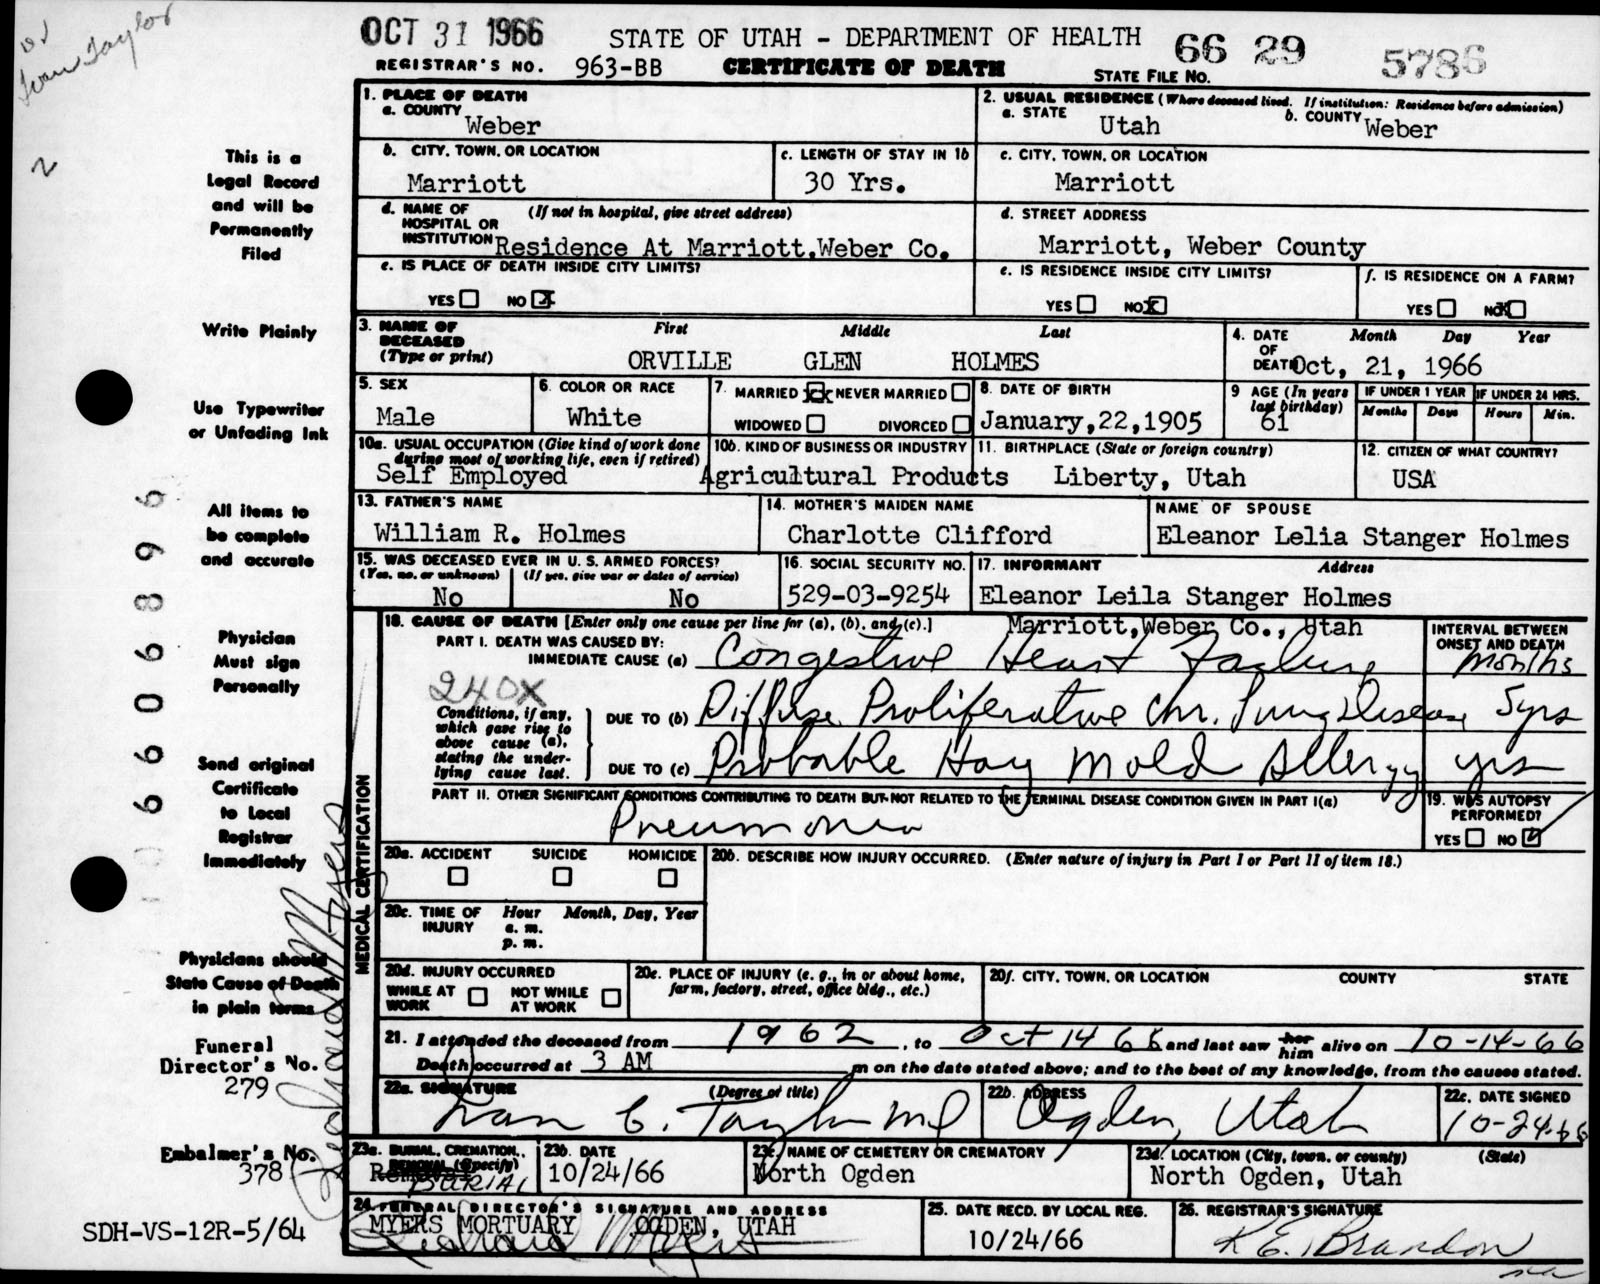 OCT 31 1966
STATE OF UTAH - DEPARTMENT OF HEALTH
66 29 5786
REGISTRAR'S NO. 963-BB
CERTIFICATE OF DEATH
STATE FILE NO.
Ivan Taylor
2
1. PLACE OF DEATH
a. COUNTY Weber
2. USUAL RESIDENCE (Where deceased lived. If institution: Residence before admission)
a. STATE Utah b. COUNTY Weber
b. CITY, TOWN, OR LOCATION
Marriott
c. LENGTH OF STAY IN 1b
30 Yrs.
c. CITY, TOWN, OR LOCATION
Marriott
d. NAME OF HOSPITAL OR INSTITUTION (If not in hospital, give street address)
Residence At Marriott, Weber Co.
d. STREET ADDRESS
Marriott, Weber County
e. IS PLACE OF DEATH INSIDE CITY LIMITS?
YES NO X
e. IS RESIDENCE INSIDE CITY LIMITS?
YES NO X
f. IS RESIDENCE ON A FARM?
YES NO X
3. NAME OF DECEASED (Type or print)
First Middle Last
ORVILLE GLEN HOLMES
4. DATE OF DEATH Month Day Year
Oct, 21, 1966
5. SEX
Male
6. COLOR OR RACE
White
7. MARRIED X NEVER MARRIED
WIDOWED DIVORCED
8. DATE OF BIRTH
January,22,1905
9 AGE (In years last birthday)
61
IF UNDER 1 YEAR
Months Days
IF UNDER 24 HRS.
Hours Min.
10a. USUAL OCCUPATION (Give kind of work done during most of working life, even if retired)
Self Employed
10b. KIND OF BUSINESS OR INDUSTRY
Agricultural Products
11. BIRTHPLACE (State or foreign country)
Liberty, Utah
12. CITIZEN OF WHAT COUNTRY?
USA
13. FATHER'S NAME
William R. Holmes
14. MOTHER'S MAIDEN NAME
Charlotte Clifford
NAME OF SPOUSE
Eleanor Lelia Stanger Holmes
15. WAS DECEASED EVER IN U. S. ARMED FORCES?
(Yes, no, or unknown) (If yes, give war or dates of service)
No No
16. SOCIAL SECURITY NO.
529-03-9254
17. INFORMANT Address
Eleanor Leila Stanger Holmes
Marriott, Weber Co., Utah
18. CAUSE OF DEATH [Enter only one cause per line for (a), (b), and (c).]
INTERVAL BETWEEN ONSET AND DEATH
PART I. DEATH WAS CAUSED BY:
IMMEDIATE CAUSE (a) Congestive Heart Failure months
240X
Conditions, if any, which gave rise to above cause (a), stating the underlying cause last.
DUE TO (b) Diffuse Proliferative Chr. Lung Disease 5yrs
DUE TO (c) Probable Hay Mold Allergy yrs
PART II. OTHER SIGNIFICANT CONDITIONS CONTRIBUTING TO DEATH BUT NOT RELATED TO THE TERMINAL DISEASE CONDITION GIVEN IN PART I(a)
Pneumonia
19. WAS AUTOPSY PERFORMED?
YES NO
MEDICAL CERTIFICATION
20a. ACCIDENT SUICIDE HOMICIDE
20b. DESCRIBE HOW INJURY OCCURRED. (Enter nature of injury in Part I or Part II of item 18.)
20c. TIME OF INJURY Hour Month, Day, Year
a. m.
p. m.
20d. INJURY OCCURRED
WHILE AT WORK NOT WHILE AT WORK
20e. PLACE OF INJURY (e. g., in or about home, farm, factory, street, office bldg., etc.)
20f. CITY, TOWN, OR LOCATION COUNTY STATE
21. I attended the deceased from 1962, to Oct 14 66 and last saw her him alive on 10-14-66
Death occurred at 3 AM m on the date stated above; and to the best of my knowledge, from the causes stated.
22a. SIGNATURE (Degree or title)
Ivan C. Taylor MD
22b. ADDRESS
Ogden, Utah
22c. DATE SIGNED
10-24-66
23a. BURIAL, CREMATION, REMOVAL (Specify)
Removal
BURIAL
23b. DATE
10/24/66
23c. NAME OF CEMETERY OR CREMATORY
North Ogden
23d. LOCATION (City, town, or county) (State)
North Ogden, Utah
24. FUNERAL DIRECTOR'S SIGNATURE AND ADDRESS
MYERS MORTUARY OGDEN, UTAH
Richard Myers
25. DATE RECD. BY LOCAL REG.
10/24/66
26. REGISTRAR'S SIGNATURE
K E. Brandon
This is a
Legal Record
and will be
Permanently
Filed
Write Plainly
Use Typewriter
or Unfading Ink
All items to
be complete
and accurate
Physician
Must sign
Personally
Send original
Certificate
to Local
Registrar
Immediately
Physicians should
State Cause of Death
in plain terms
Funeral
Director's No.
279
Embalmer's No.
378
Richard Myers
SDH-VS-12R-5/64